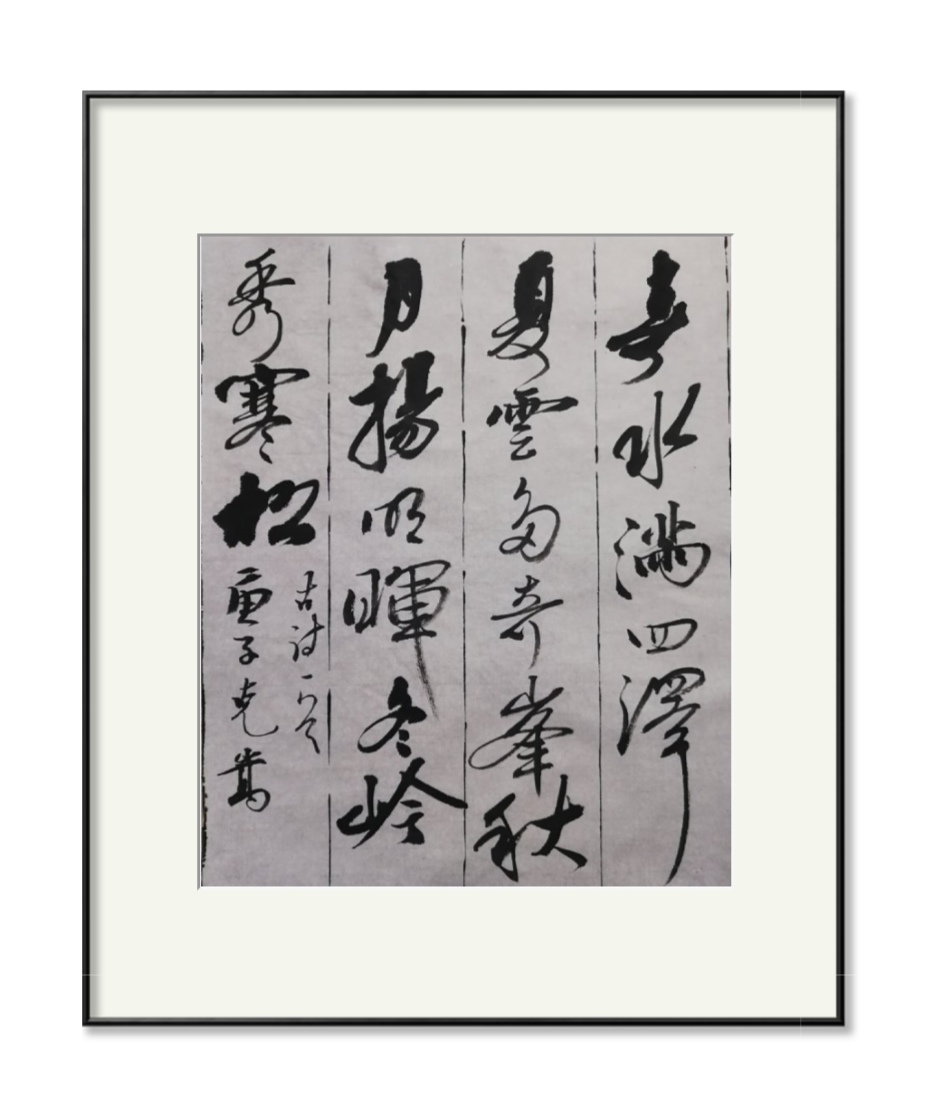 春水滿四澤
夏雲多奇峯秋
月揚明暉冬岭
秀寒松
古诗一首
庚子克